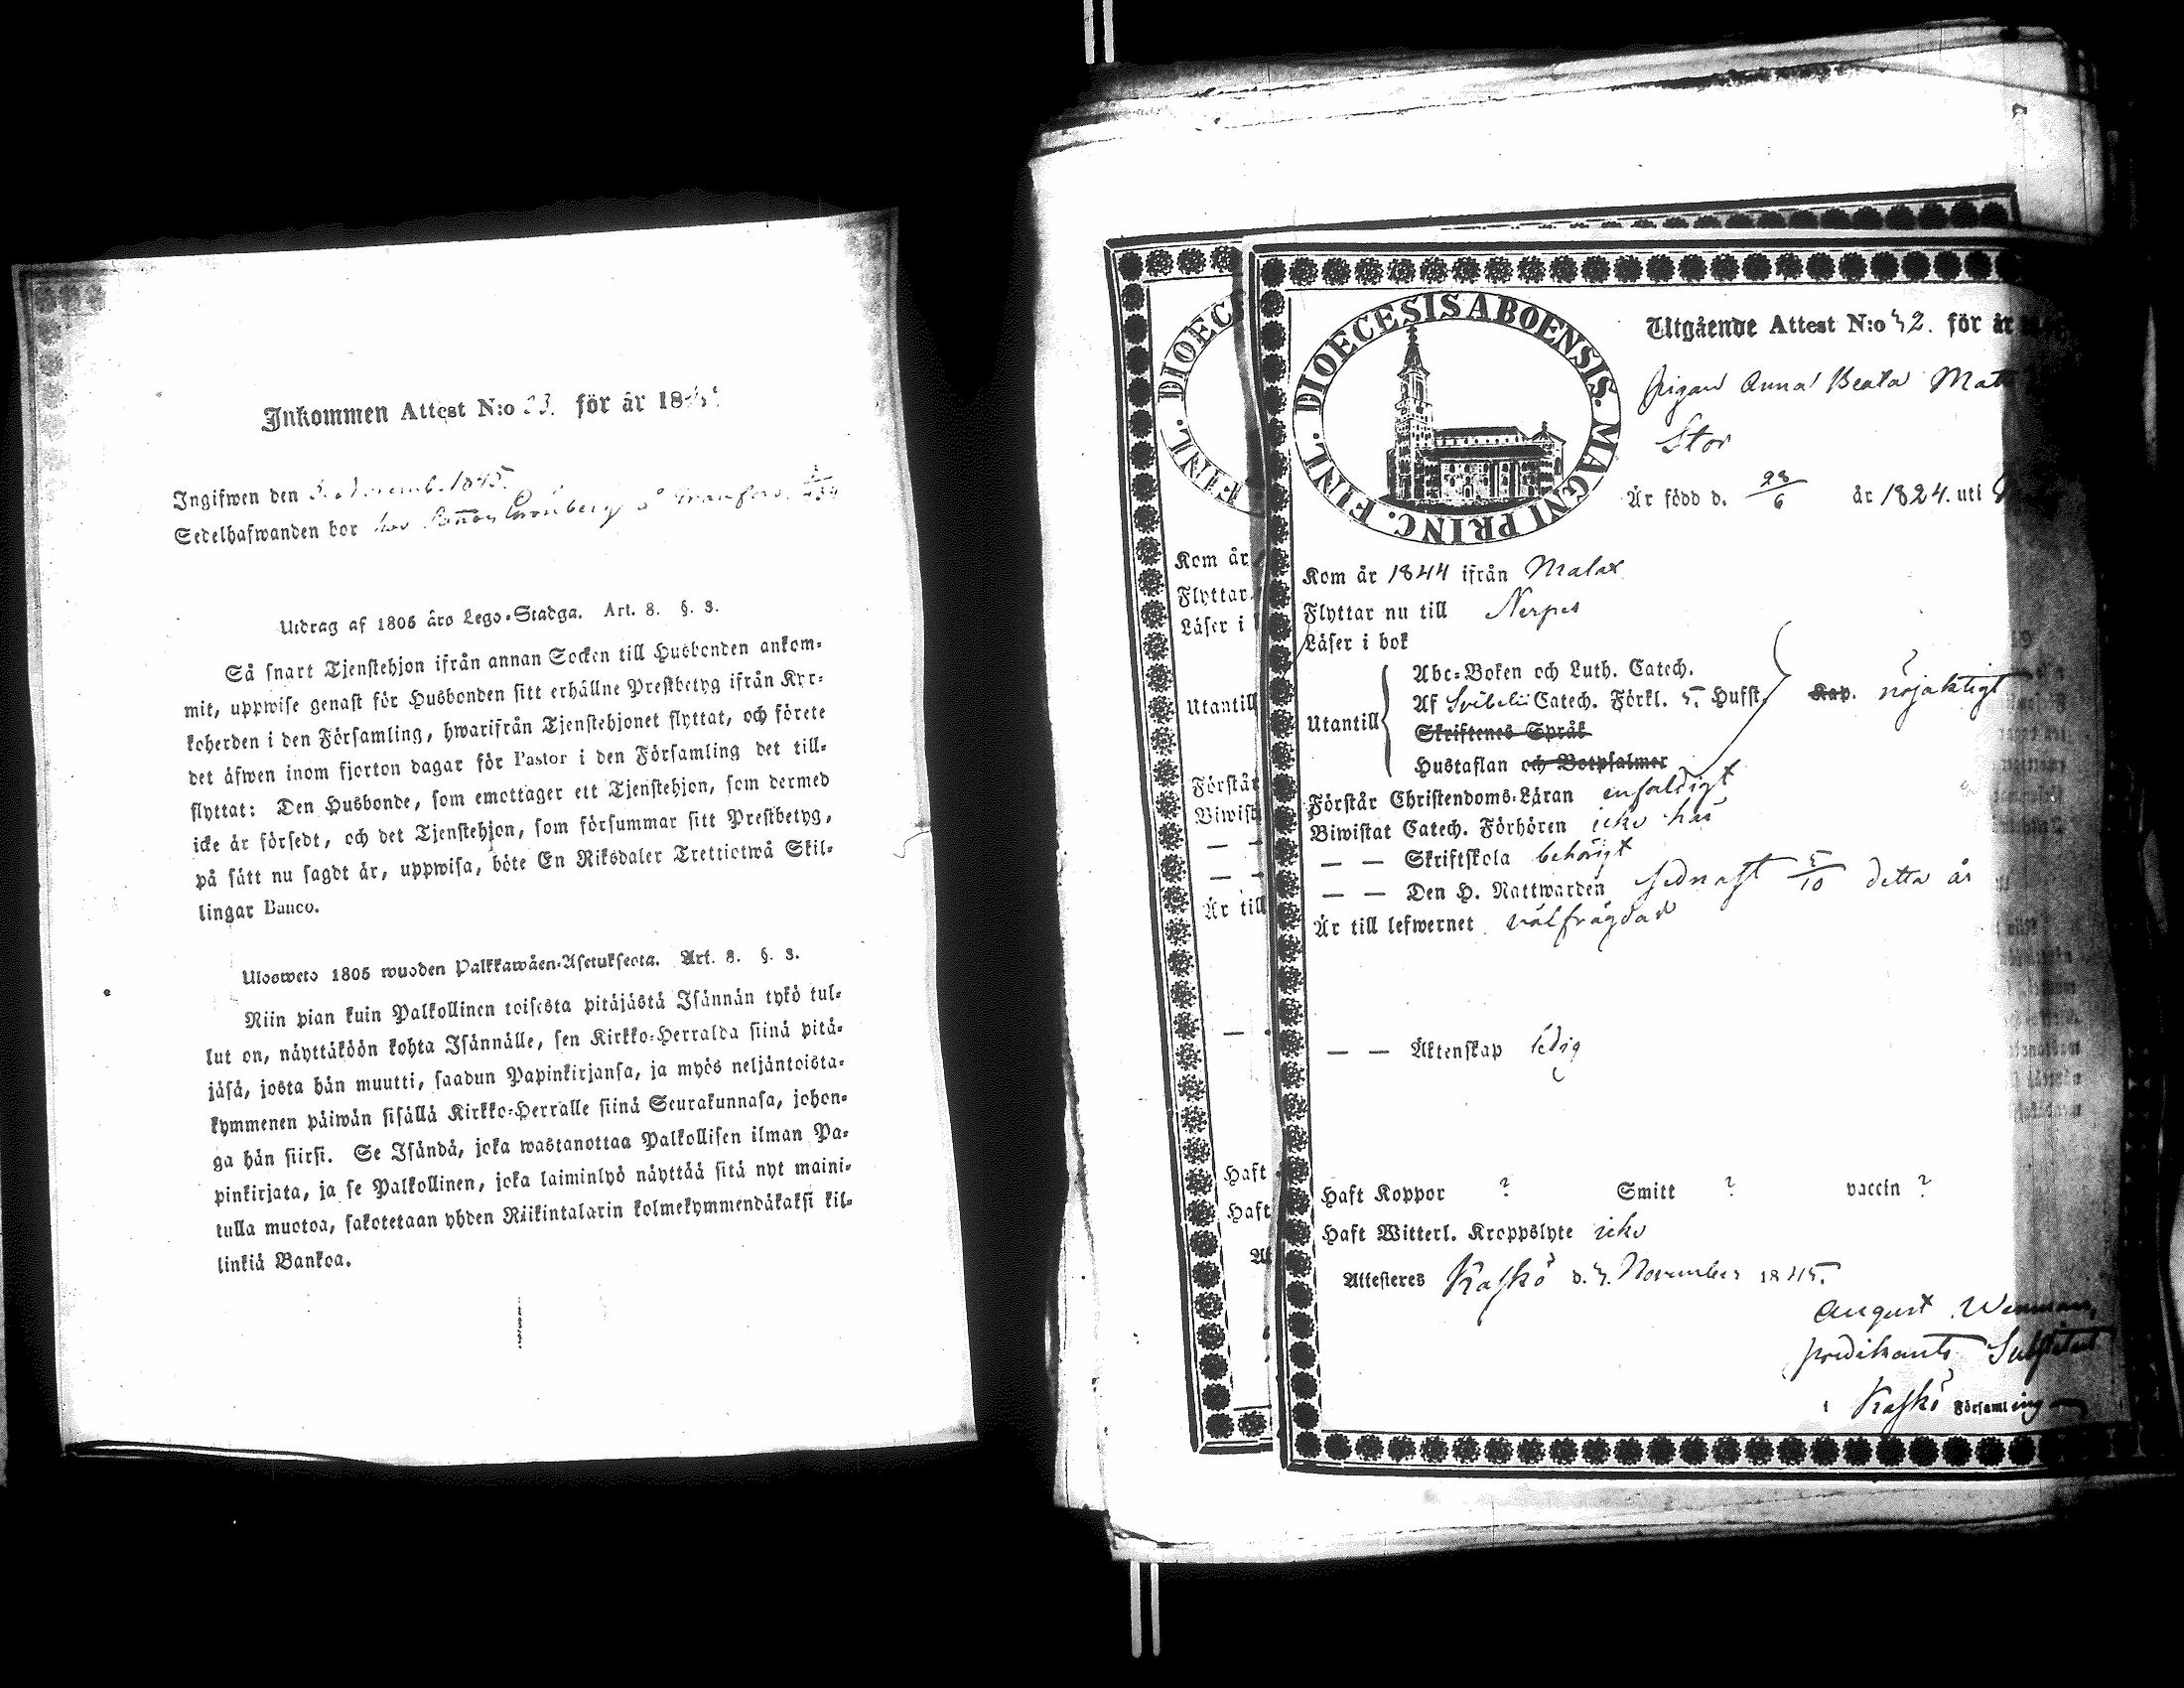 Inkommen Attest N:o 23. för år 18
Ingifwen den 5. Novemb. 1845.
Sedelhafwanden bor hos
Utdrag af 1805 års Lego-Stadga. Art. 8. §. 3.
Så snart Tjenstehjon ifrån annan Socken till Husbonden ankom-
mit, uppwise genast för Husbonden sitt erhållne Prestbetyg ifrån Kyr-
koherden i den Församling, hwarifrån Tjenstehjonet flyttat, och förete
det åfwen inom fjorton dagar för Pastor i den Församling det till-
flyttat: Den Husbonde, som emottager ett Tjenstehjon, som dermed
icke är försedt, och det Tjenstehjon, som försummar sitt Prestbetyg,
på sätt nu sagdt är, uppwisa, böte En Riksdaler Trettiotwå Skil-
lingar Banco.
Ulosweto 1805 wuoden Palkkawäen-Asetuksesta. Art. 8. §. 3.
Niin pian kuin Palkollinen toisesta pitäjästä Isännän tykö tul-
lut on, näyttäköön kohta Isännälle, sen Kirkko-Herralda siinä pitä-
jäsä, josta hän muutti, saadun Papinkirjansa, ja myös neljäntoista-
kymmenen päiwän sisällä Kirkko-Herralle siinä Seurakunnasa, johon-
ga hän siirsi. Se Isändä, joka wastanottaa Palkollisen ilman Pa-
pinkirjata, ja se Palkollinen, joka laiminlyö näyttää sitä nyt maini-
tulla muotoa, sakotetaan yhden Riikintalarin kolmekymmendäkaksi kil-
linkiä Bankoa.
DIOECESIS ABOENSIS. MAGNI PRINC. FINL.
Utgående Attest N:o 32. för år
Pigan Anna Beata Mat
Stor
Är född d. 28/6 år 1824. uti
Kom år 1844 ifrån Malax
Flyttar nu till Nerpes
Läser i bok
Utantill
Abc-Boken och Luth. Catech.
Af Svebelii Catech. Förkl. 5. Hufst. Kap. nöjaktigt
Skriftenes Språk
Hustaflan och Botpsalmer
Förstår Christendoms-Läran enfaldigt
Biwistat Catech. Förhören icke här
— — Skriftskola behörigt
— — Den H. Nattwarden sednast 5/10 detta år
Är till lefwernet välfrägdad
— — Äktenskap ledig
Haft Koppor ? Smitt ? vaccin ?
Haft Witterl. Kroppslyte icke
Attesteres Kaskö d. 3. November 1845.
August Wenman,
predikants Substitut
i Kaskö Församling
DIOECES
FINL.
Kom år
Flyttar
Läser i
Utantill
Förstår
Biwist
— —
— —
Är till
Haft
Haft